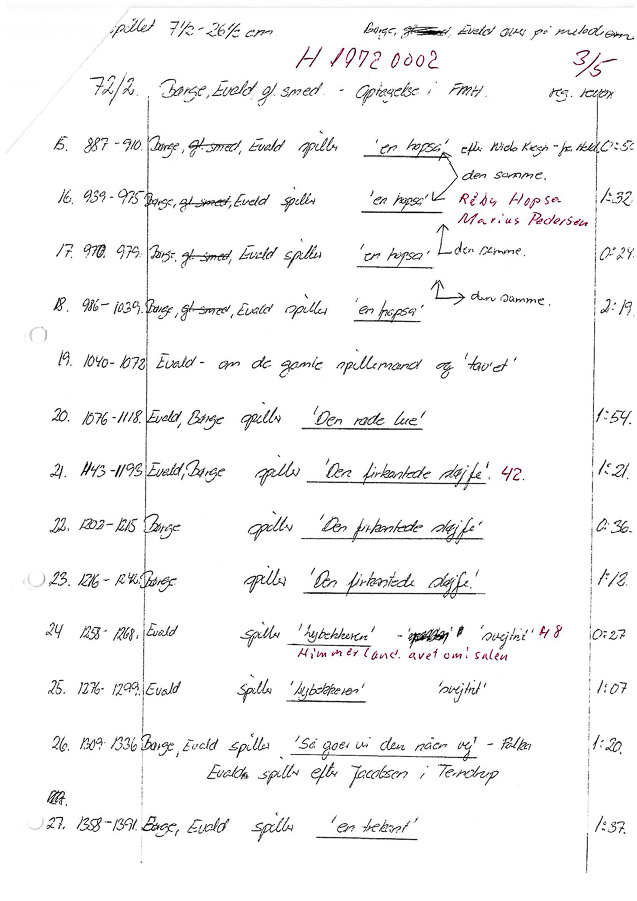 spillet 7½-26½ cm Børge, gl. smed, Evald over på melodien
H 1972 0002 3/5
72/2. Børge, Evald, gl. smed. - Optagelse i FMH. reg. revox
15. 887-910. Børge, gl. smed, Evald spiller 'en hopsa' efter Niels Krogh - fra Hald. 0:50
den samme.
16. 939-975 Børge, gl. smed, Evald spiller 'en hopsa' Råby Hopsa 1:32
Marius Pedersen
17. 970. 979. Børge, gl. smed, Evald spiller 'en hopsa' den samme. 0:24
18. 986-1039. Børge, gl. smed, Evald spiller 'en hopsa' den samme. 2:19
19. 1040-1072 Evald - om de gamle spillemænd og 'tavret'
20. 1076-1118. Evald, Børge spiller 'Den røde lue' 1:54.
21. 1143-1193 Evald, Børge spiller 'Den firkantede sløjfe'. 42. 1:21.
22. 1202-1215 Børge spiller 'Den firkantede sløjfe' 0:36.
23. 1216-1242. Børge spiller 'Den firkantede sløjfe'. 1:12.
24 1258-1268. Evald spiller 'Lybækkeren' - 'svejtrit' 48 0:27
Himmerland. avet om i salen
25. 1276-1299. Evald spiller 'Lybekkeren' 'svejtrit' 1:07
26. 1309-1336 Børge, Evald spiller 'Så goer vi den nåen vej' - Polka 1:20.
Evald spiller efter Jacobsen i Terndrup
27. 1358-1391. Børge, Evald spiller 'en trekant' 1:37.